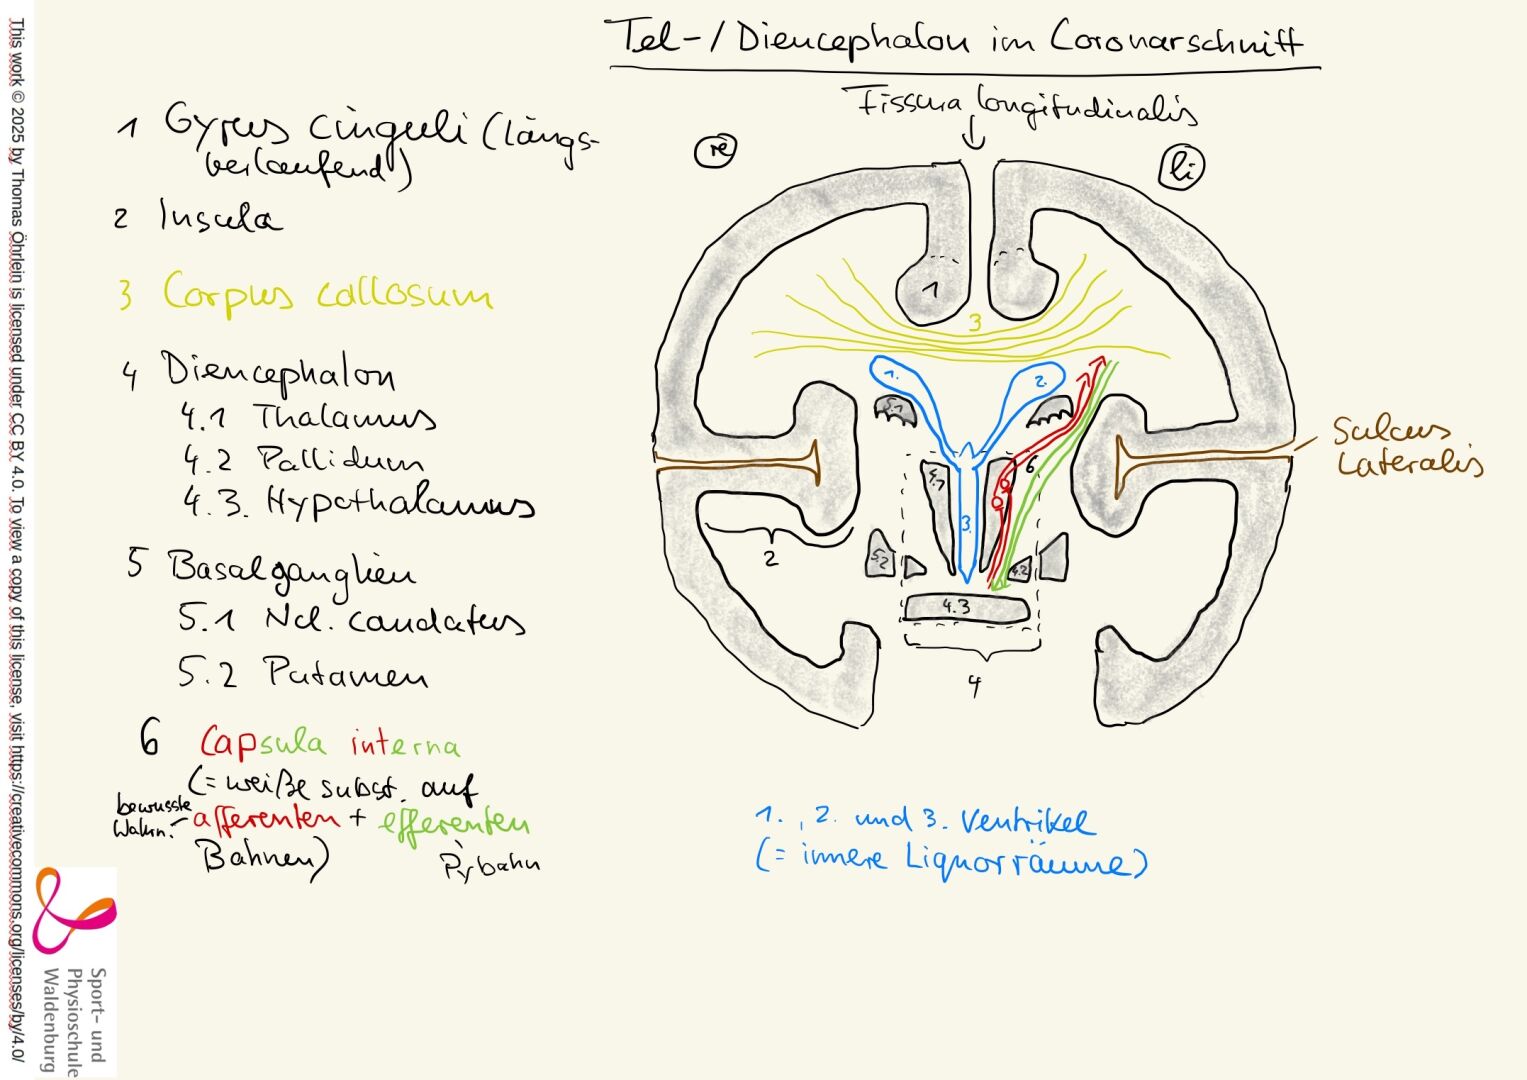 Tel-/Diencephalon im Coronarschnitt
Fissura longitudinalis
re
li
1 Gyrus cinguli (längs-
verlaufend)
2 Insula
3 Corpus callosum
4 Diencephalon
4.1 Thalamus
4.2 Pallidum
4.3. Hypothalamus
5 Basalganglien
5.1 Ncl. caudatus
5.2 Putamen
6 Capsula interna
(= weiße subst. auf
bewusste
Wahrn.
afferenten + efferenten
Bahnen)
Pybahn
1
3
1.
2.
5.1
6
4.1
3.
2
5.2
4.2
4.3
4
Sulcus
Lateralis
1., 2. und 3. Ventrikel
(= innere Liquorräume)
This work © 2025 by Thomas Öhrlein is licensed under CC BY 4.0. To view a copy of this license, visit https://creativecommons.org/licenses/by/4.0/
Sport- und
Physioschule
Waldenburg